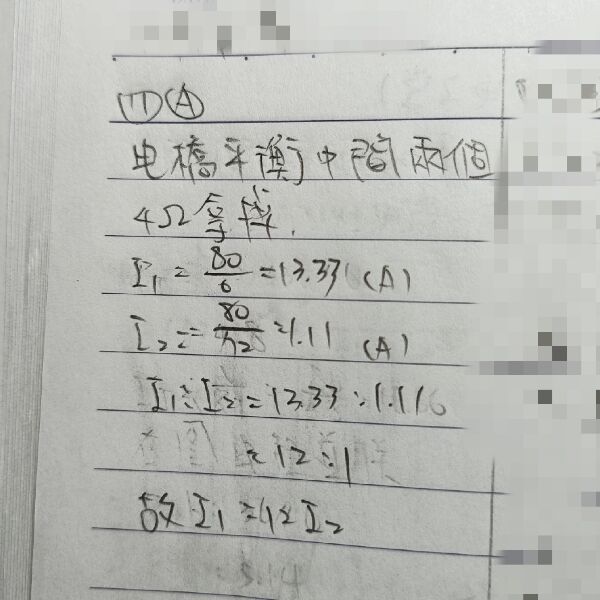 (1)Ⓐ
电橋平衡中間兩個
4Ω

I₁ = 80/6 = 13.33 (A)
I₂ = 80/72 = 1.11 (A)
I₁ : I₂ = 13.33 : 1.11
= 12 : 1
故 I₁ = 12 I₂